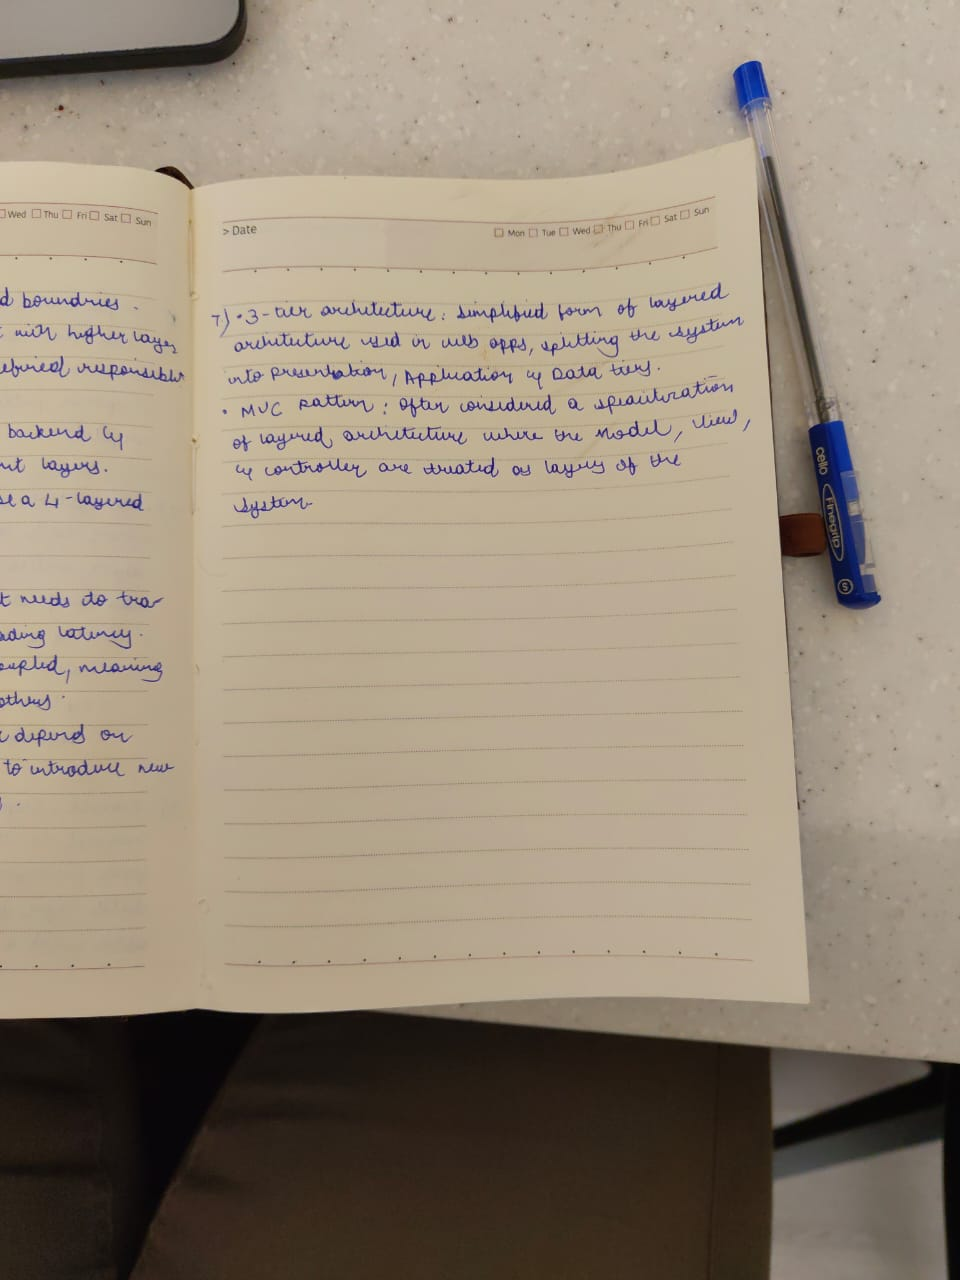 Wed Thu Fri Sat Sun
d boundries.
with higher layer
efined responsible
backend &
nt layers.
se a 4-layered
t needs to tra-
ading latency.
oupled, meaning
others.
depend on
to introduce new
> Date
Mon Tue Wed Thu Fri Sat Sun
7) • 3-tier architecture: simplified form of layered
architecture used in web apps, splitting the system
into presentation, Application & Data tiers.
• MVC Pattern: Often considered a specialization
of layered architecture where the Model, View,
& controller are treated as layers of the
system.
cello
Finegrip
S